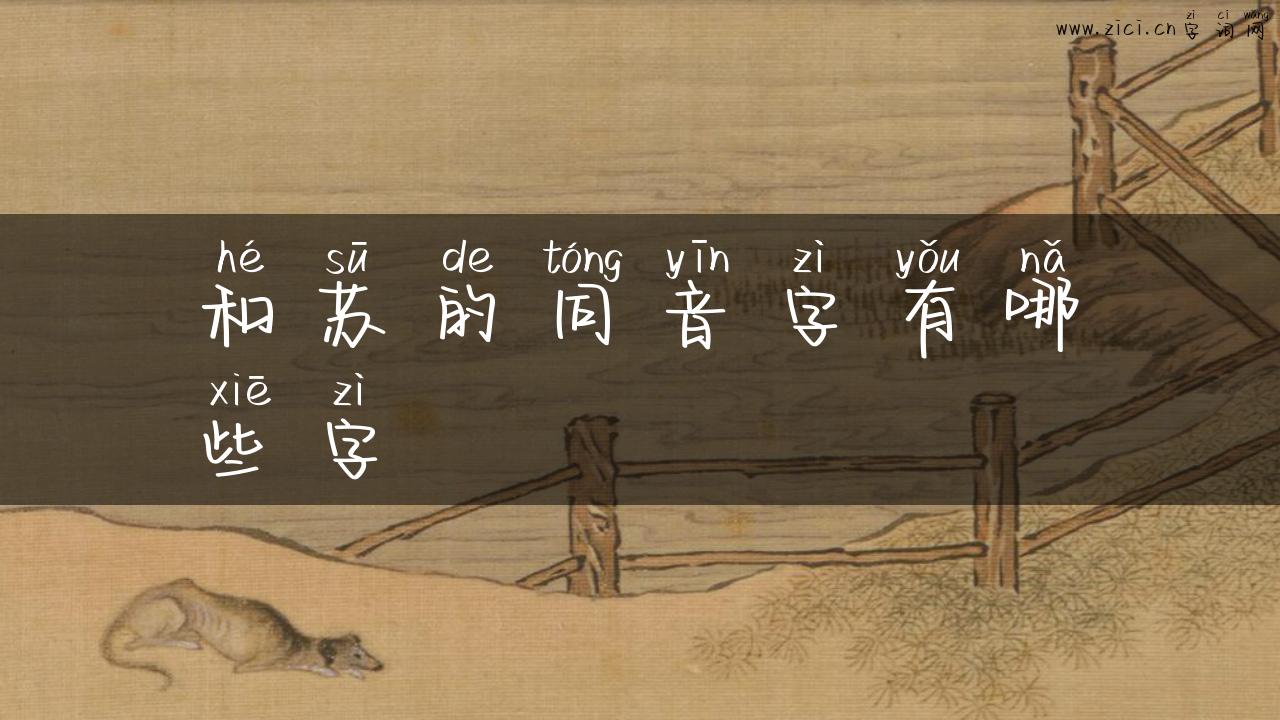 zi ci wang
www.zici.cn字词网
hé sū de tóng yīn zì yǒu nǎ
和苏的同音字有哪
xiē zì
些字